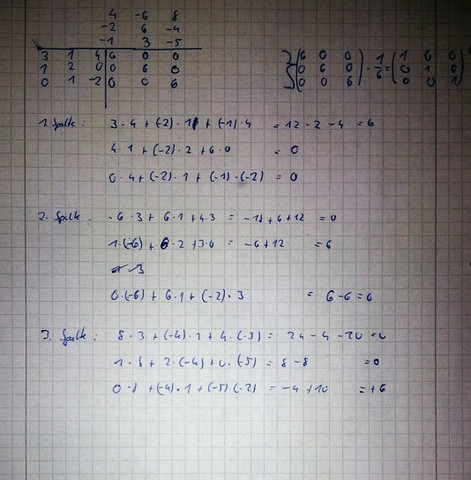 4 -6 8
-2 6 -4
-1 3 -5
3 1 4 6 0 0
1 2 0 0 6 0
0 1 -2 0 0 6
(6 0 0 0 6 0 0 0 6) · 1/6 = (1 0 0 0 1 0 0 0 1)
1. Spalte: 3·4 + (-2)·1 + (-1)·4 = 12 - 2 - 4 = 6
4·1 + (-2)·2 + 6·0 = 0
0·4 + (-2)·1 + (-1)·(-2) = 0
2. Spalte: -6·3 + 6·1 + 4·3 = -18 + 6 + 12 = 0
1·(-6) + 6·2 + 3·0 = -6 + 12 = 6
0·(-6) + 6·1 + (-2)·3 = 6 - 6 = 0
3. Spalte: 8·3 + (-4)·1 + 4·(-5) = 24 - 4 - 20 = 0
1·8 + 2·(-4) + 0·(-5) = 8 - 8 = 0
0·8 + (-4)·1 + (-5)·(-2) = -4 + 10 = +6